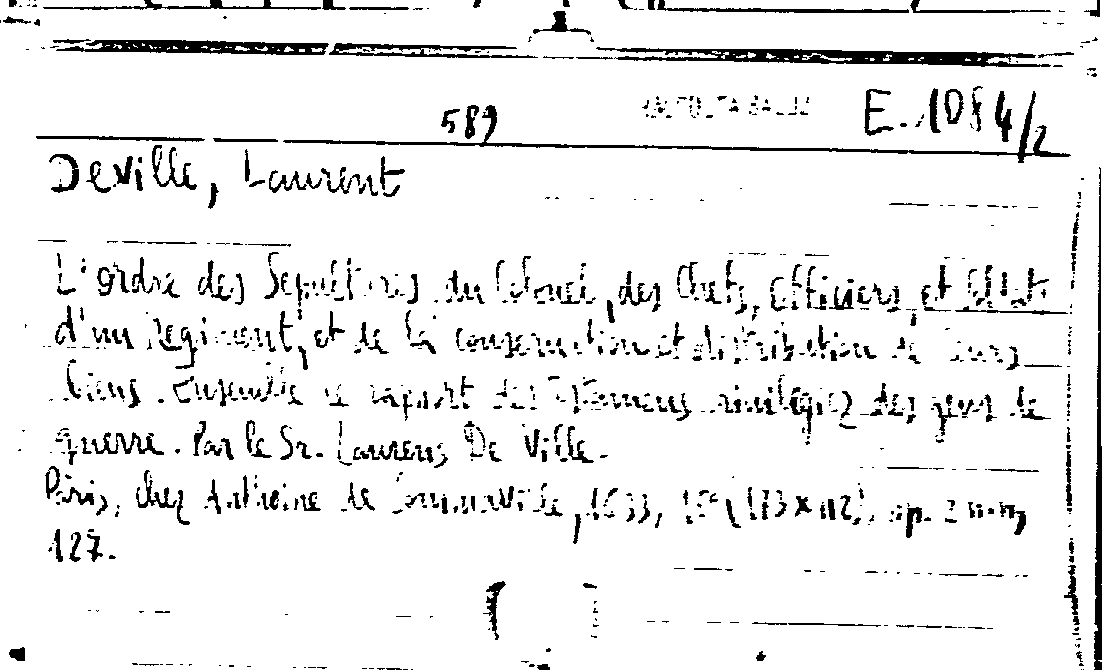 589 E. 1084/2
Deville, Laurent
L'ordre des Sepultures du Colonel, des Chefs, Officiers, et Soldats
d'un Regiment, et de la conservation et distribution de leurs
biens. Ensemble le raport des Testamens privilegiez des gens de
guerre. Par le Sr. Laurens De Ville.
Paris, chez Anthoine de Sommaville, 1633, (173x112), pp. 2 n.n,
127.